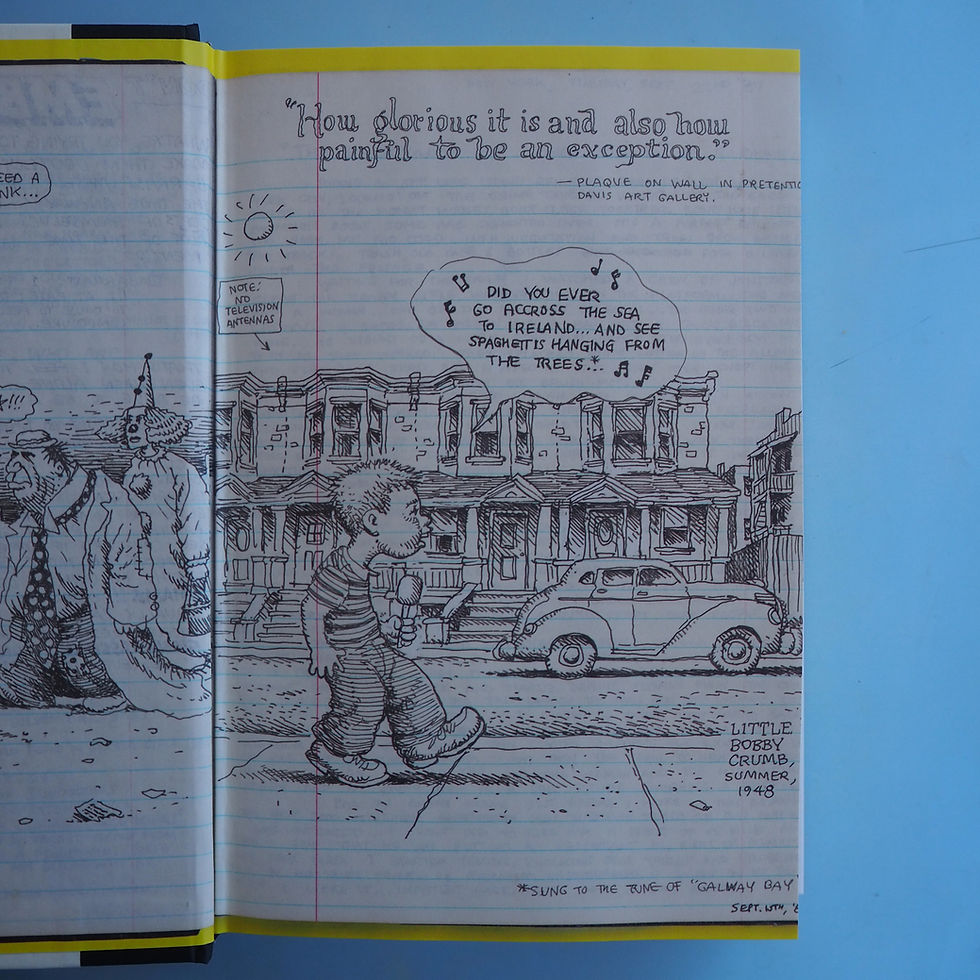 EED A
NK...
!!!
"How glorious it is and also how
painful to be an exception."
— PLAQUE ON WALL IN PRETENTIO
DAVIS ART GALLERY.
NOTE:
NO
TELEVISION
ANTENNAS
DID YOU EVER
GO ACCROSS THE SEA
TO IRELAND... AND SEE
SPAGHETTIS HANGING FROM
THE TREES...*
LITTLE
BOBBY
CRUMB,
SUMMER,
1948
*SUNG TO THE TUNE OF "GALWAY BAY"
SEPT.